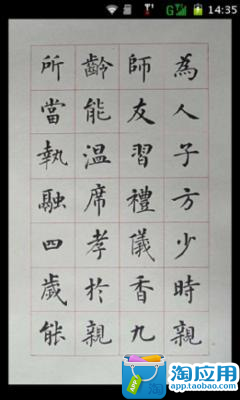 14:35
為人子方少時親
師友習禮儀香九
齡能溫席孝於親
所當執融四歲能
淘应用
app.taobao.com